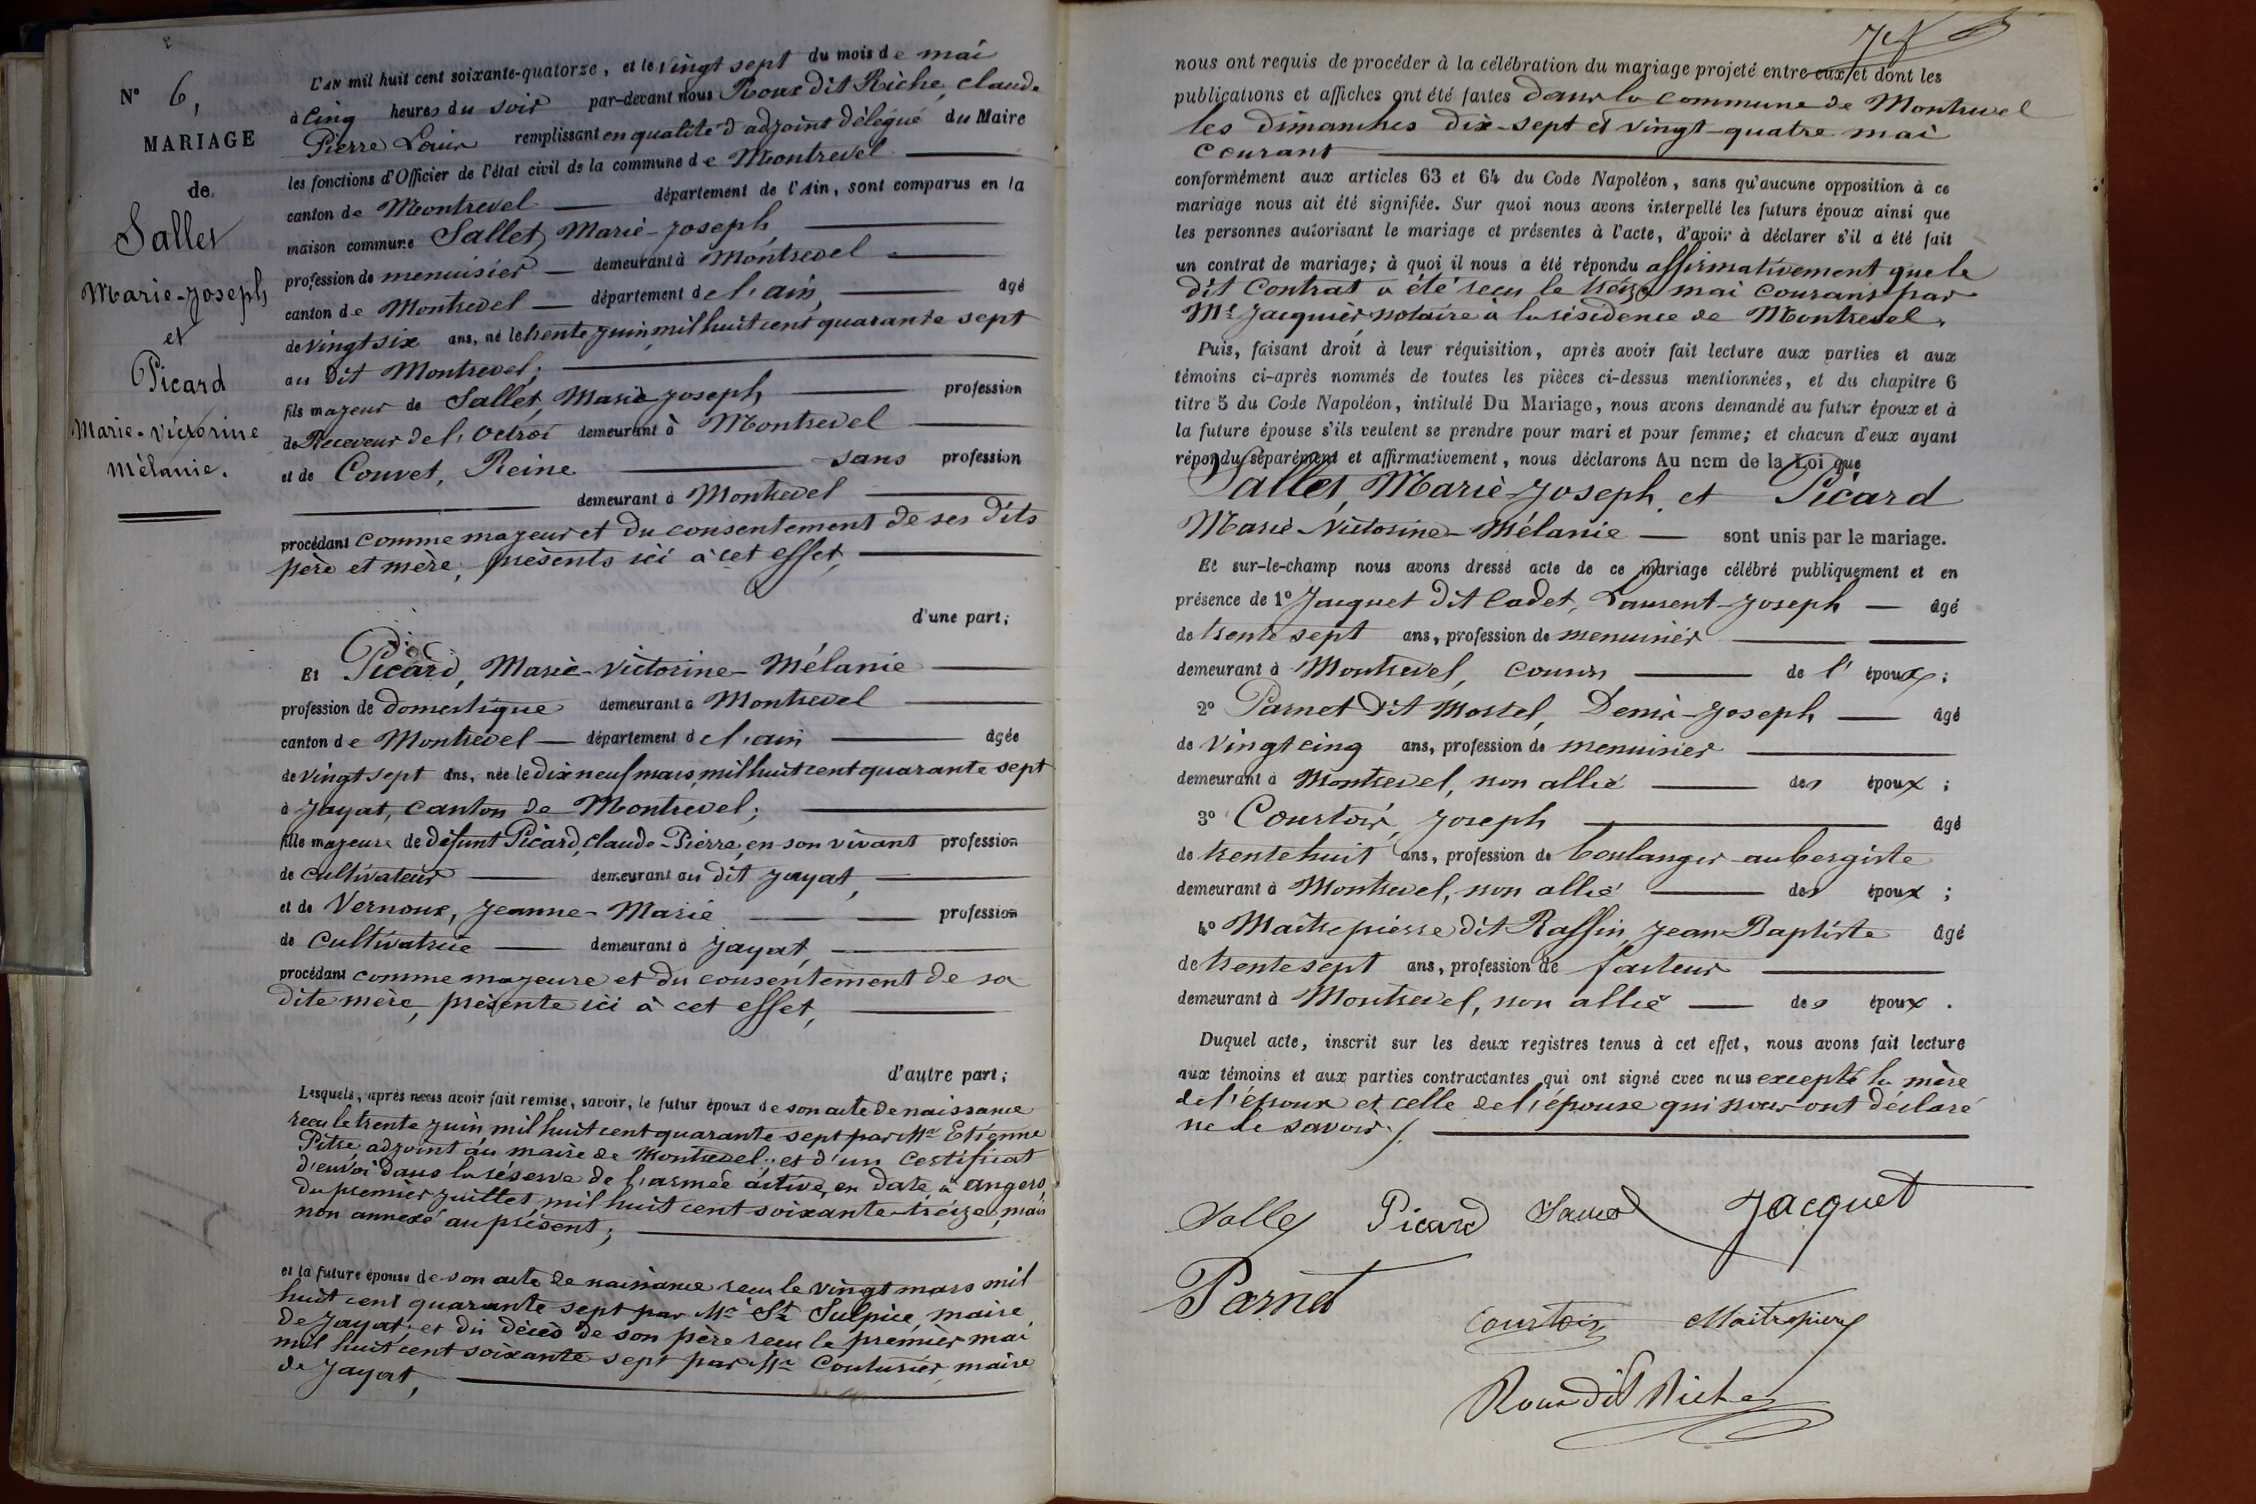 N° 6,
MARIAGE
de
Sallet
Marie-Joseph
et
Picard
Marie-Victorine
Mélanie.
L'AN mil huit cent soixante-quatorze, et le vingt sept du mois de mai
à cinq heures du soir par-devant nous Roux dit Riche, Claude
Pierre Louis remplissant en qualité d'adjoint délégué du Maire
les fonctions d'Officier de l'état civil de la commune de Montrevel
canton de Montrevel département de l'Ain, sont comparus en la
maison commune Sallet, Marie-Joseph,
profession de menuisier demeurant à Montrevel
canton de Montrevel département de l'ain, âgé
de vingt six ans, né le trente juin, mil huit cent quarante sept
au dit Montrevel;
fils majeur de Sallet, Marie Joseph profession
de Receveur de l'Octroi demeurant à Montrevel
et de Couvet, Reine sans profession
demeurant à Montrevel
procédant comme majeur et du consentement de ses dits
père et mère, présents ici à cet effet,
d'une part;
Et Picard, Marie-Victorine-Mélanie
profession de domestique demeurant à Montrevel
canton de Montrevel département de l'ain âgée
de vingt sept ans, née le dix neuf mars, mil huit cent quarante sept
à Jayat, canton de Montrevel;
fille majeure de défunt Picard, Claude-Pierre, en son vivant profession
de cultivateur demeurant au dit Jayat,
et de Vernoux, Jeanne-Marie profession
de cultivatrice demeurant à Jayat,
procédant comme majeure et du consentement de sa
dite mère, présente ici à cet effet,
d'autre part;
Lesquels, après nous avoir fait remise, savoir, le futur époux de son acte de naissance
reçu le trente juin mil huit cent quarante sept par Mr Etienne
Pitre, adjoint au maire de Montrevel; et d'un certificat
d'envoi dans la réserve de l'armée active, en date, à Angers,
du premier juillet, mil huit cent soixante-treize, mais
non annexé au présent;
et la future épouse de son acte de naissance reçu le vingt mars mil
huit cent quarante sept par Mr St Sulpice, maire
de Jayat; et du décès de son père reçu le premier mai
mil huit cent soixante sept par Mr Couturier, maire
de Jayat,
nous ont requis de procéder à la célébration du mariage projeté entre eux, et dont les
publications et affiches ont été faites dans la commune de Montrevel
les dimanches dix-sept et vingt-quatre mai
courant
conformément aux articles 63 et 64 du Code Napoléon, sans qu'aucune opposition à ce
mariage nous ait été signifiée. Sur quoi nous avons interpellé les futurs époux ainsi que
les personnes autorisant le mariage et présentes à l'acte, d'avoir à déclarer s'il a été fait
un contrat de mariage; à quoi il nous a été répondu affirmativement que le
dit contrat a été reçu le treize mai courant par
Mr Jacquier, notaire à la résidence de Montrevel.
Puis, faisant droit à leur réquisition, après avoir fait lecture aux parties et aux
témoins ci-après nommés de toutes les pièces ci-dessus mentionnées, et du chapitre 6
titre 5 du Code Napoléon, intitulé Du Mariage, nous avons demandé au futur époux et à
la future épouse s'ils veulent se prendre pour mari et pour femme; et chacun d'eux ayant
répondu séparément et affirmativement, nous déclarons Au nom de la Loi que
Sallet, Marie-Joseph, et Picard
Marie-Victorine-Mélanie sont unis par le mariage.
Et sur-le-champ nous avons dressé acte de ce mariage célébré publiquement et en
présence de 1° Jacquet dit Cadet, Laurent-Joseph âgé
de trente sept ans, profession de menuisier
demeurant à Montrevel, cousin de l' époux;
2° Parnet dit Mostel, Denis-Joseph âgé
de vingt cinq ans, profession de menuisier
demeurant à Montrevel, non allié des époux;
3° Courtois, Joseph âgé
de trente huit ans, profession de boulanger aubergiste
demeurant à Montrevel, non allié des époux;
4° Maitrepierre dit Raffin, Jean Baptiste âgé
de trente sept ans, profession de facteur
demeurant à Montrevel, non allié des époux.
Duquel acte, inscrit sur les deux registres tenus à cet effet, nous avons fait lecture
aux témoins et aux parties contractantes qui ont signé avec nous excepté la mère
de l'époux et celle de l'épouse qui nous ont déclaré
ne le savoir ./.
Sallet Picard Jacquet
Parnet
Courtois Maitrepierre
Roux dit Riche